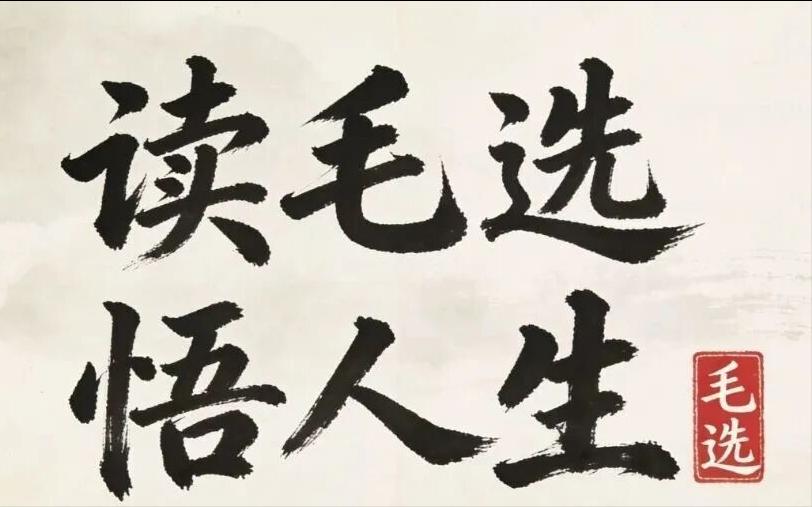 读毛选
悟人生
毛选